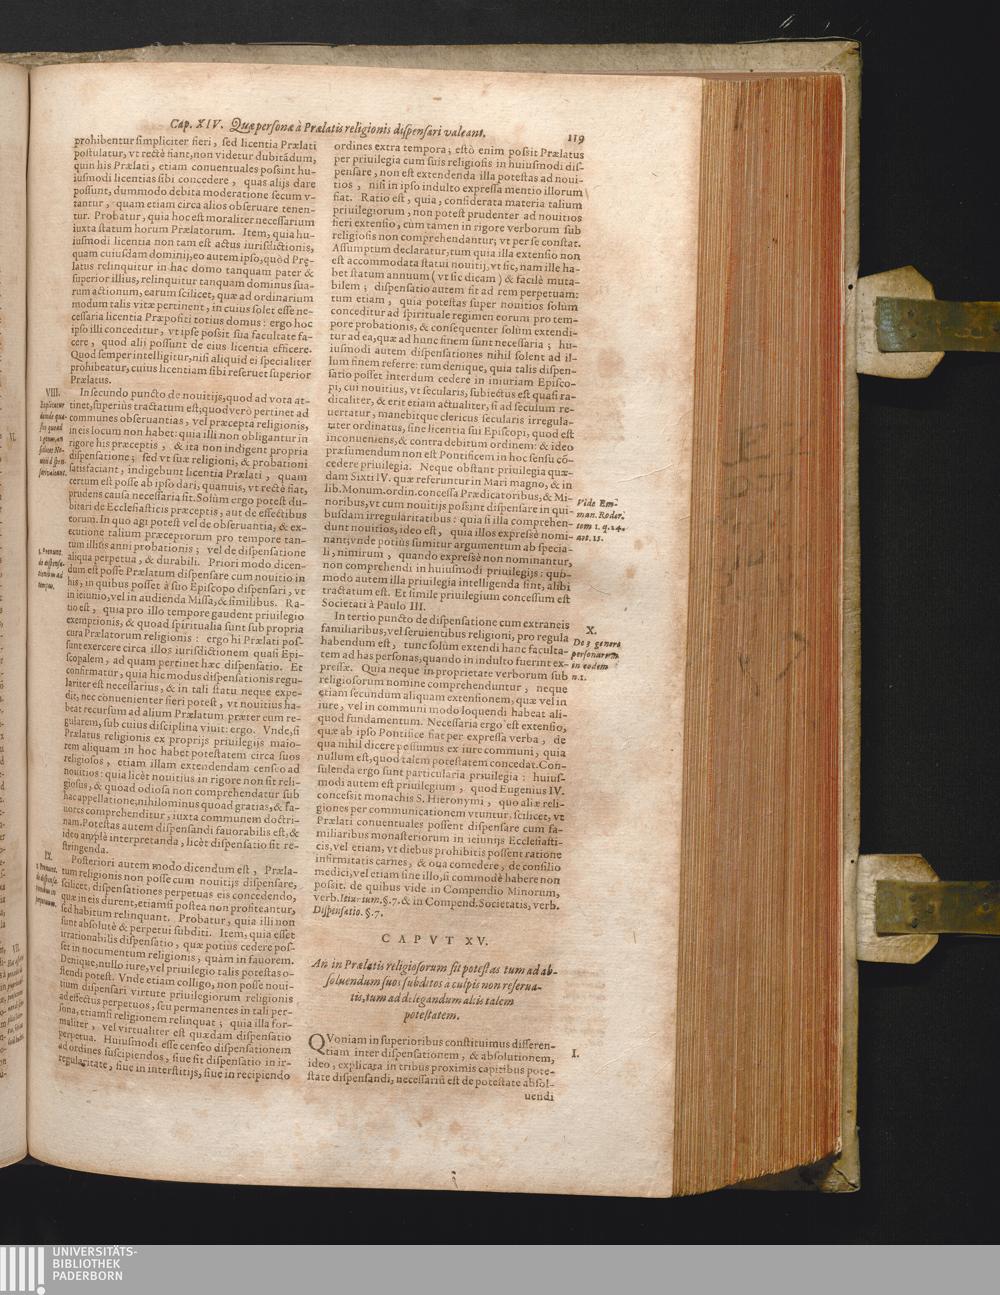 Cap. XIV. Quæ personæ à Prælatis religionis dispensari valeant.
119
prohibentur simpliciter fieri, sed licentia Prælati
postulatur, vt rectè fiant, non videtur dubitãdum,
quin his Prælati, etiam conuentuales possint hu-
iusmodi licentias sibi concedere, quas alijs dare
possunt, dummodo debita moderatione secum v-
tantur, quam etiam circa alios obseruare tenen-
tur. Probatur, quia hoc est moraliter necessarium
iuxta statum horum Prælatorum. Item, quia hu-
iusmodi licentia non tam est actus iurisdictionis,
quam cuiusdam dominij, eo autem ipso, quòd Prę-
latus relinquitur in hac domo tanquam pater &
superior illius, relinquitur tanquam dominus sua-
rum actionum, earum scilicet, quæ ad ordinarium
modum talis vitæ pertinent, in cuius solet esse ne-
cessaria licentia Præpositi totius domus: ergo hoc
ipso illi conceditur, vt ipse possit sua facultate fa-
cere, quod alij possunt de eius licentia efficere.
Quod semper intelligitur, nisi aliquid ei specialiter
prohibeatur, cuius licentiam sibi reseruet superior
Prælatus.
VIII.
In secundo puncto de nouitijs, quod ad vota at-
tinet, superiùs tractatum est, quod verò pertinet ad
communes obseruantias, vel præcepta religionis,
in eis locum non habet: quia illi non obligantur in
rigore his præceptis, & ita non indigent propria
dispensatione; sed vt suæ religioni, & probationi
satisfaciant, indigebunt licentia Prælati, quam
certum est posse ab ipso dari, quamuis, vt rectè fiat,
prudens causa necessaria sit. Solùm ergo potest du-
bitari de Ecclesiasticis præceptis, aut de effectibus
eorum. In quo agi potest vel de obseruantia, & ex-
ecutione talium præceptorum pro tempore tan-
tùm illius anni probationis; vel de dispensatione
aliqua perpetua, & durabili. Priori modo dicen-
1. Pronunt.
de dispensa-
tione ad
tempus.
dum est posse Prælatum dispensare cum nouitio in
his, in quibus posset à suo Episcopo dispensari, vt
in ieiunio, vel in audienda Missa, & similibus. Ra-
tio est, quia pro illo tempore gaudent priuilegio
exemptionis, & quoad spiritualia sunt sub propria
cura Prælatorum religionis: ergo hi Prælati pos-
sunt exercere circa illos iurisdictionem quasi Epi-
scopalem, ad quam pertinet hæc dispensatio. Et
confirmatur, quia hic modus dispensationis regu-
lariter est necessarius, & in tali statu neque expe-
dit, nec conuenienter fieri potest, vt nouitius ha-
beat recursum ad alium Prælatum præter eum re-
gularem, sub cuius disciplina viuit: ergo. Vnde, si
Prælatus religionis ex proprijs priuilegijs maio-
rem aliquam in hoc habet potestatem circa suos
religiosos, etiam illam extendendam censeo ad
nouitios: quia licèt nouitius in rigore non sit reli-
giosus, & quoad odiosa non comprehendatur sub
hac appellatione, nihilominus quoad gratias, & fa-
uores comprehenditur, iuxta communem doctri-
nam. Potestas autem dispensandi fauorabilis est, &
ideo amplè interpretanda, licèt dispensatio sit re-
stringenda.
IX.
Posteriori autem modo dicendum est, Præla-
tum religionis non posse cum nouitijs dispensare,
scilicet, dispensationes perpetuas eis concedendo,
quæ in eis durent, etiamsi postea non profiteantur,
sed habitum relinquant. Probatur, quia illi non
sunt absolutè & perpetui subditi. Item, quia esset
irrationabilis dispensatio, quæ potius cedere pos-
set in nocumentum religionis, quàm in fauorem.
Denique, nullo iure, vel priuilegio talis potestas o-
stendi potest. Vnde etiam colligo, non posse noui-
tium dispensari virtute priuilegiorum religionis
ad effectus perpetuos, seu permanentes in tali per-
sona, etiamsi religionem relinquat; quia illa for-
maliter, vel virtualiter est quædam dispensatio
perpetua. Huiusmodi esse censeo dispensationem
ad ordines suscipiendos, siue sit dispensatio in ir-
regularitate, siue in interstitijs, siue in recipiendo
ordines extra tempora; estò enim possit Prælatus
per priuilegia cum suis religiosis in huiusmodi dis-
pensare, non est extendenda illa potestas ad noui-
tios, nisi in ipso indulto expressa mentio illorum
fiat. Ratio est, quia, considerata materia talium
priuilegiorum, non potest prudenter ad nouitios
fieri extensio, cum tamen in rigore verborum sub
religiosis non comprehendantur; vt per se constat.
Assumptum declaratur, tum quia illa extensio non
est accommodata statui nouitij, vt sic, nam ille ha-
bet statum annuum (vt sic dicam) & facilè muta-
bilem; dispensatio autem fit ad rem perpetuam:
tum etiam, quia potestas super nouitios solùm
conceditur ad spirituale regimen eorum pro tem-
pore probationis, & consequenter solùm extendi-
tur ad ea, quæ ad hunc finem sunt necessaria; hu-
iusmodi autem dispensationes nihil solent ad il-
lum finem referre: tum denique, quia talis dispen-
satio posset interdum cedere in iniuriam Episco-
pi, cui nouitius, vt secularis, subiectus est quasi ra-
dicaliter, & erit etiam actualiter, si ad seculum re-
uertatur, manebitque clericus secularis irregula-
riter ordinatus, sine licentia sui Episcopi, quod est
inconueniens, & contra debitum ordinem: & ideo
præsumendum non est Pontificem in hoc sensu cõ-
cedere priuilegia. Neque obstant priuilegia quæ-
dam Sixti IV. quæ referuntur in Mari magno, & in
lib. Monum. ordin. concessa Prædicatoribus, & Mi-
noribus, vt cum nouitijs possint dispensare in qui-
busdam irregularitatibus: quia si illa comprehen-
dunt nouitios, ideo est, quia illos expressè nomi-
nant; vnde potiùs sumitur argumentum ab specia-
li, nimirum, quando expressè non nominantur,
non comprehendi in huiusmodi priuilegijs: quo-
modo autem illa priuilegia intelligenda sint, alibi
tractatum est. Et simile priuilegium concessum est
Societati à Paulo III.
Vide Em-
man. Roder.
tom 1. q. 24.
art. 15.
In tertio puncto de dispensatione cum extraneis
familiaribus, vel seruientibus religioni, pro regula
habendum est, tunc solùm extendi hanc faculta-
tem ad has personas, quando in indulto fuerint ex-
pressæ. Quia neque in proprietate verborum sub
religiosorum nomine comprehenduntur, neque
etiam secundum aliquam extensionem, quæ vel in
iure, vel in communi modo loquendi habeat ali-
quod fundamentum. Necessaria ergo est extensio,
quæ ab ipso Pontifice fiat per expressa verba, de
qua nihil dicere possumus ex iure communi, quia
nullum est, quod talem potestatem concedat. Con-
sulenda ergo sunt particularia priuilegia: huius-
modi autem est priuilegium, quod Eugenius IV.
concessit monachis S. Hieronymi, quo aliæ reli-
giones per communicationem vtuntur. scilicet, vt
Prælati conuentuales possent dispensare cum fa-
miliaribus monasteriorum in ieiunijs Ecclesiasti-
cis, vel etiam, vt diebus prohibitis possent ratione
infirmitatis carnes, & oua comedere, de consilio
medici, vel etiam sine illo, si commodè habere non
possit. de quibus vide in Compendio Minorum,
verb. Ieiunium. §. 7. & in Compend. Societatis, verb.
Dispensatio. §. 7.
X.
De 3 genere
personarum
in eodem
n. 1.
CAPVT XV.
An in Prælatis religiosorum sit potestas tum ad ab-
soluendum suos subditos a culpis non reserua-
tis, tum ad delegandum aliis talem
potestatem.
QVoniam in superioribus constituimus differen-
tiam inter dispensationem, & absolutionem,
ideo, explicata in tribus proximis capitibus pote-
state dispensandi, necessariũ est de potestate absol-
I.
uendi
UNIVERSITÄTS-
BIBLIOTHEK
PADERBORN